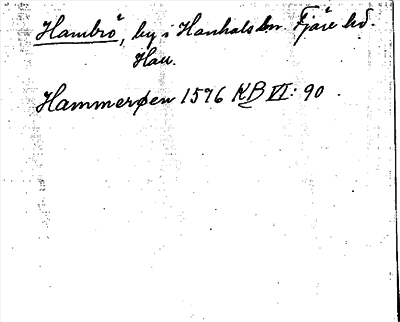 Hambrö, by i Hanhals sn. Fjäre hd.
Hall.
Hammerøen 1576 KB VI: 90.